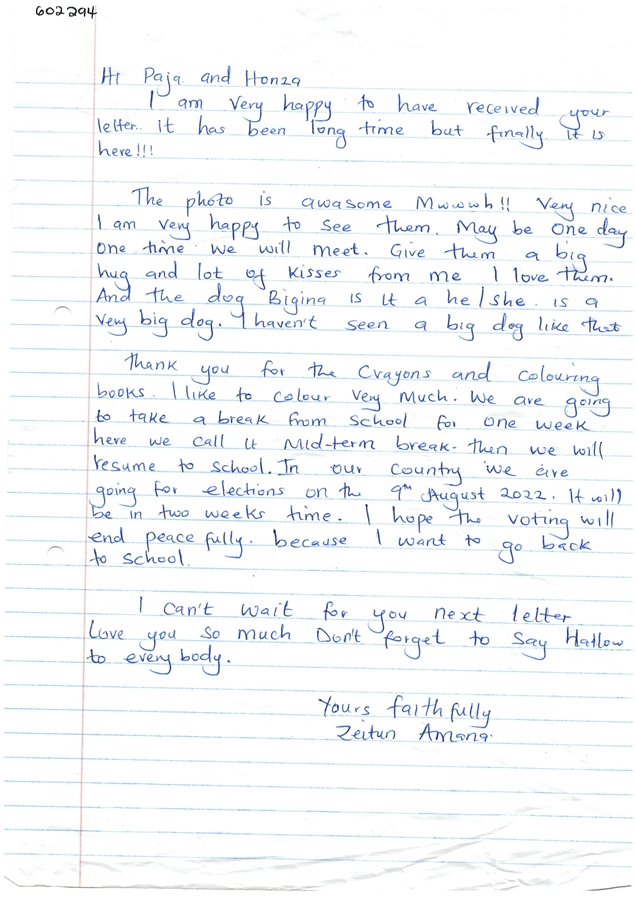 602294
Hi Paja and Honza
I am very happy to have received your
letter. it has been long time but finally it is
here!!!
The photo is awasome Mwwwh!! Very nice
I am very happy to see them. May be one day
one time we will meet. Give them a big
hug and lot of kisses from me I love them.
And the dog Bigina is it a he/she. is a
very big dog. I haven't seen a big dog like that
Thank you for the Crayons and colouring
books. I like to colour very much. We are going
to take a break from school for one week
here we call it Mid-term break. then we will
resume to school. In our country we are
going for elections on the 9th August 2022. It will
be in two weeks time. I hope the voting will
end peacefully. because I want to go back
to school.
I can't wait for you next letter
Love you so much Don't forget to say Hallow
to every body.
Yours faithfully
Zeitun Amana.